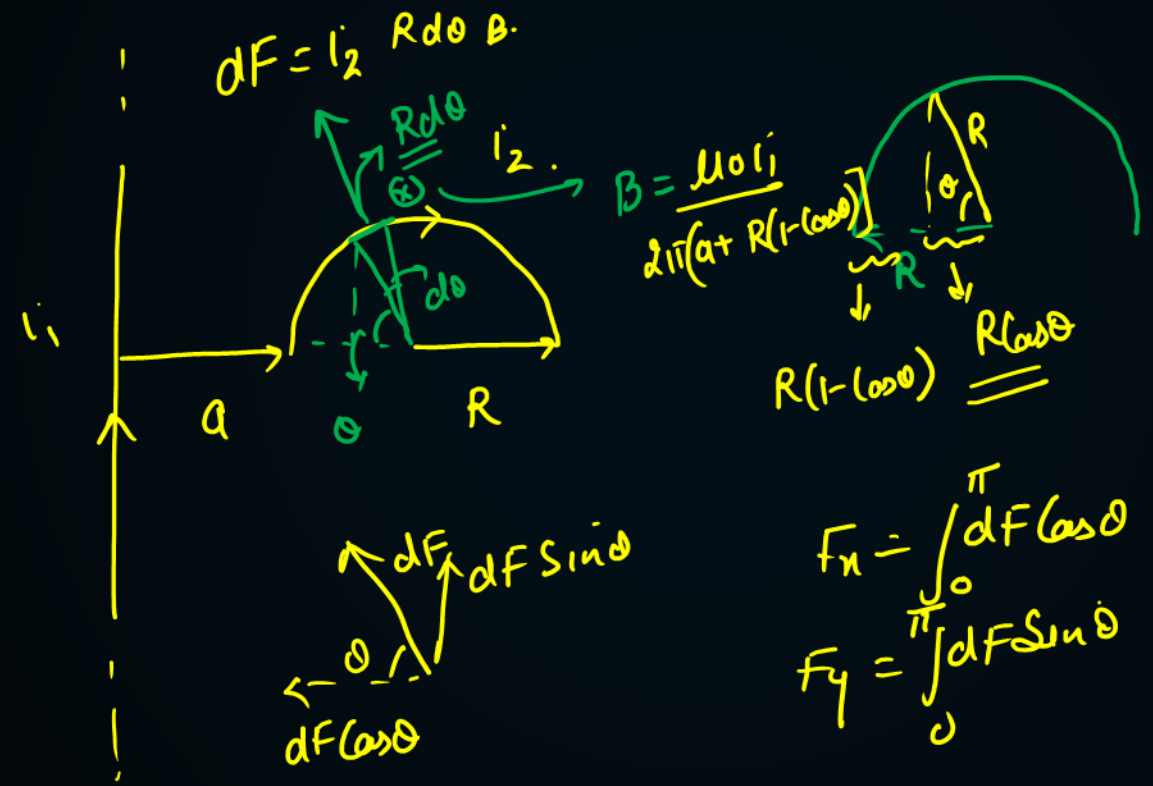 dF = i₂ Rdθ B.
Rdθ
i₂.
(x)
B = μ₀i₁ / 2π[a + R(1-Cosθ)]
R
θ
dθ
i₁
R
R(1-Cosθ)
RCosθ
a
θ
R
dF
dF Sinθ
θ
dF Cosθ
Fx = ∫₀^π dF Cosθ
Fy = ∫₀^π dF Sinθ